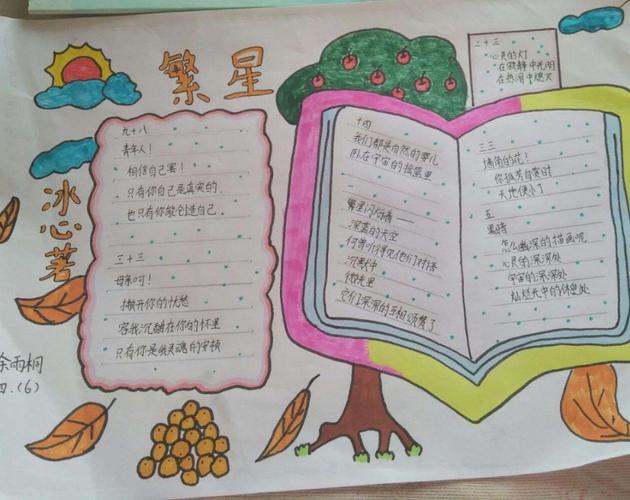 繁星
冰心著
余雨桐
四.(6)
九十八
青年人！
相信自己罢！
只有你自己是真实的
也只有你能创造自己.
三十三
母亲呵！
撇开你的忧愁
容我沉酣在你的怀里
只有你是我灵魂的安顿
二十三
心灵的灯
在寂静中光明
在热闹中熄灭
十四
我们都是自然的婴儿
卧在宇宙的摇篮里
一
繁星闪烁着——
深蓝的天空
何曾听得见他们对语
沉默中
微光里
它们深深的互相颂赞了
三三
墙角的花！
你孤芳自赏时
天地便小了
五
黑暗
怎么幽深的描画呢
心灵的深深处
宇宙的深深处
灿烂光中的休息处